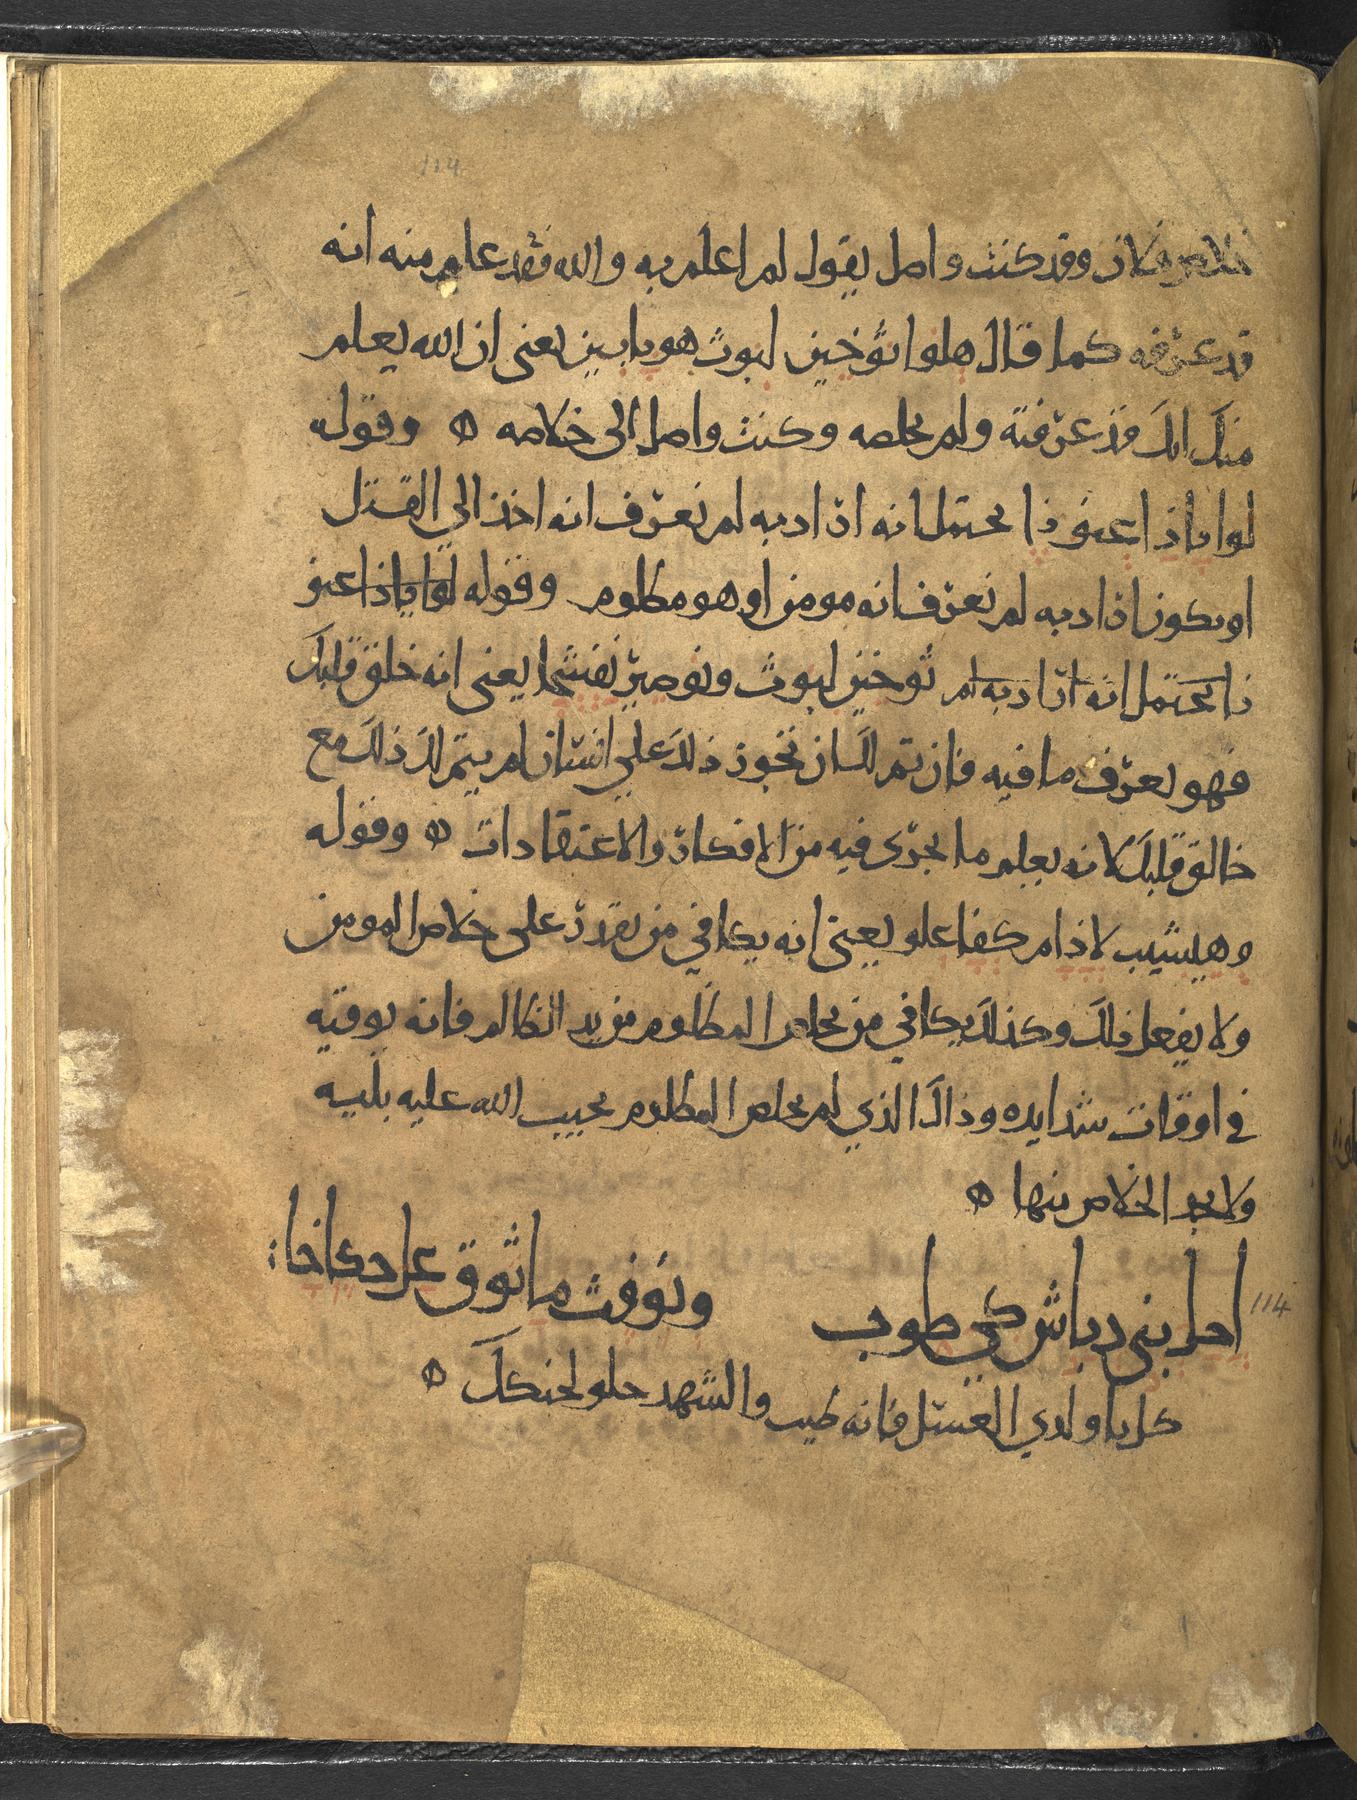 114
خلاص فلان وقد كنت واصل يقول لم اعلم به والله فقد علم منه انه
قد عرفه كما قال هلوا ثوخين لبوث هو يابين يعني ان الله يعلم
منك انك قد عرفته ولم تخلصه وكنت واصل الى خلاصه ۞ وقوله
لوا ياذاعنو زا يحتمل انه اراد به لم نعرف انه اخذ الي القتل
او يكون اراد به لم نعرف انه مومن او هو مظلوم وقوله لوا ياذاعنو
زا يحتمل انه اراد به لم ثوخين لبوث ونوصير نفشخا يعني انه خلق قلبك
فهو يعرف ما فيه فان تم لك ان تجوز ذلك علي انسان لم يتم لك ذلك مع
خالق قلبك لانه يعلم ما يجري فيه من الافكار والاعتقادات ۞ وقوله
وهيشيب لاذام كفاعلو يعني انه يكافي من يقدر على خلاص المومن
ولا يفعل ذلك وكذلك يكافي من يخلص المظلوم من يد الظالم فانه يوقيه
في اوقات شدايده وذاك الذي لم يخلص المظلوم يجيب الله عليه بليه
ولا يجد الخلاص منها ۞
اخل بني دباش كي طوب ونوفث ماثوق عل حكاخا:
114
كل يا ولدي العسل فانه طيب والشهد حلو لحنكك ۞